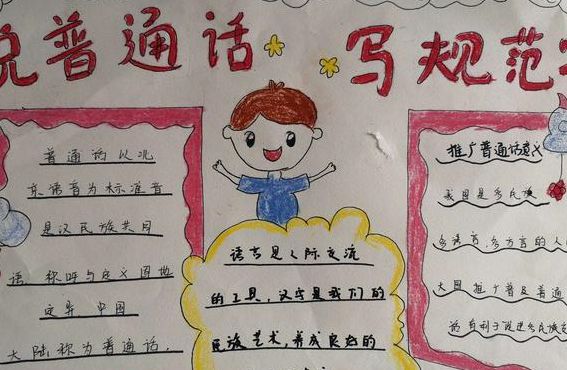 说普通话 写规范
普通话以北
京语音为标准音
是汉民族共同
语 称呼与定义 因地
定异 中国
大陆称为普通话.
语言是人际交流
的工具,汉字是我们的
民族艺术,养成良好的
推广普通话意义
我国是多民族
多语言,多方言的人
大国 推广普及普通
话有利于促进多民族